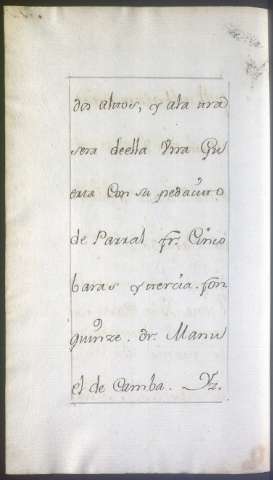 dos altos, y ala tra
sera deella Vna Gu
erta Con su pedacito
de Parral fr. Cinco
baras y tercia. fon
quinze. dr. Manu
el de Camba. Vz.